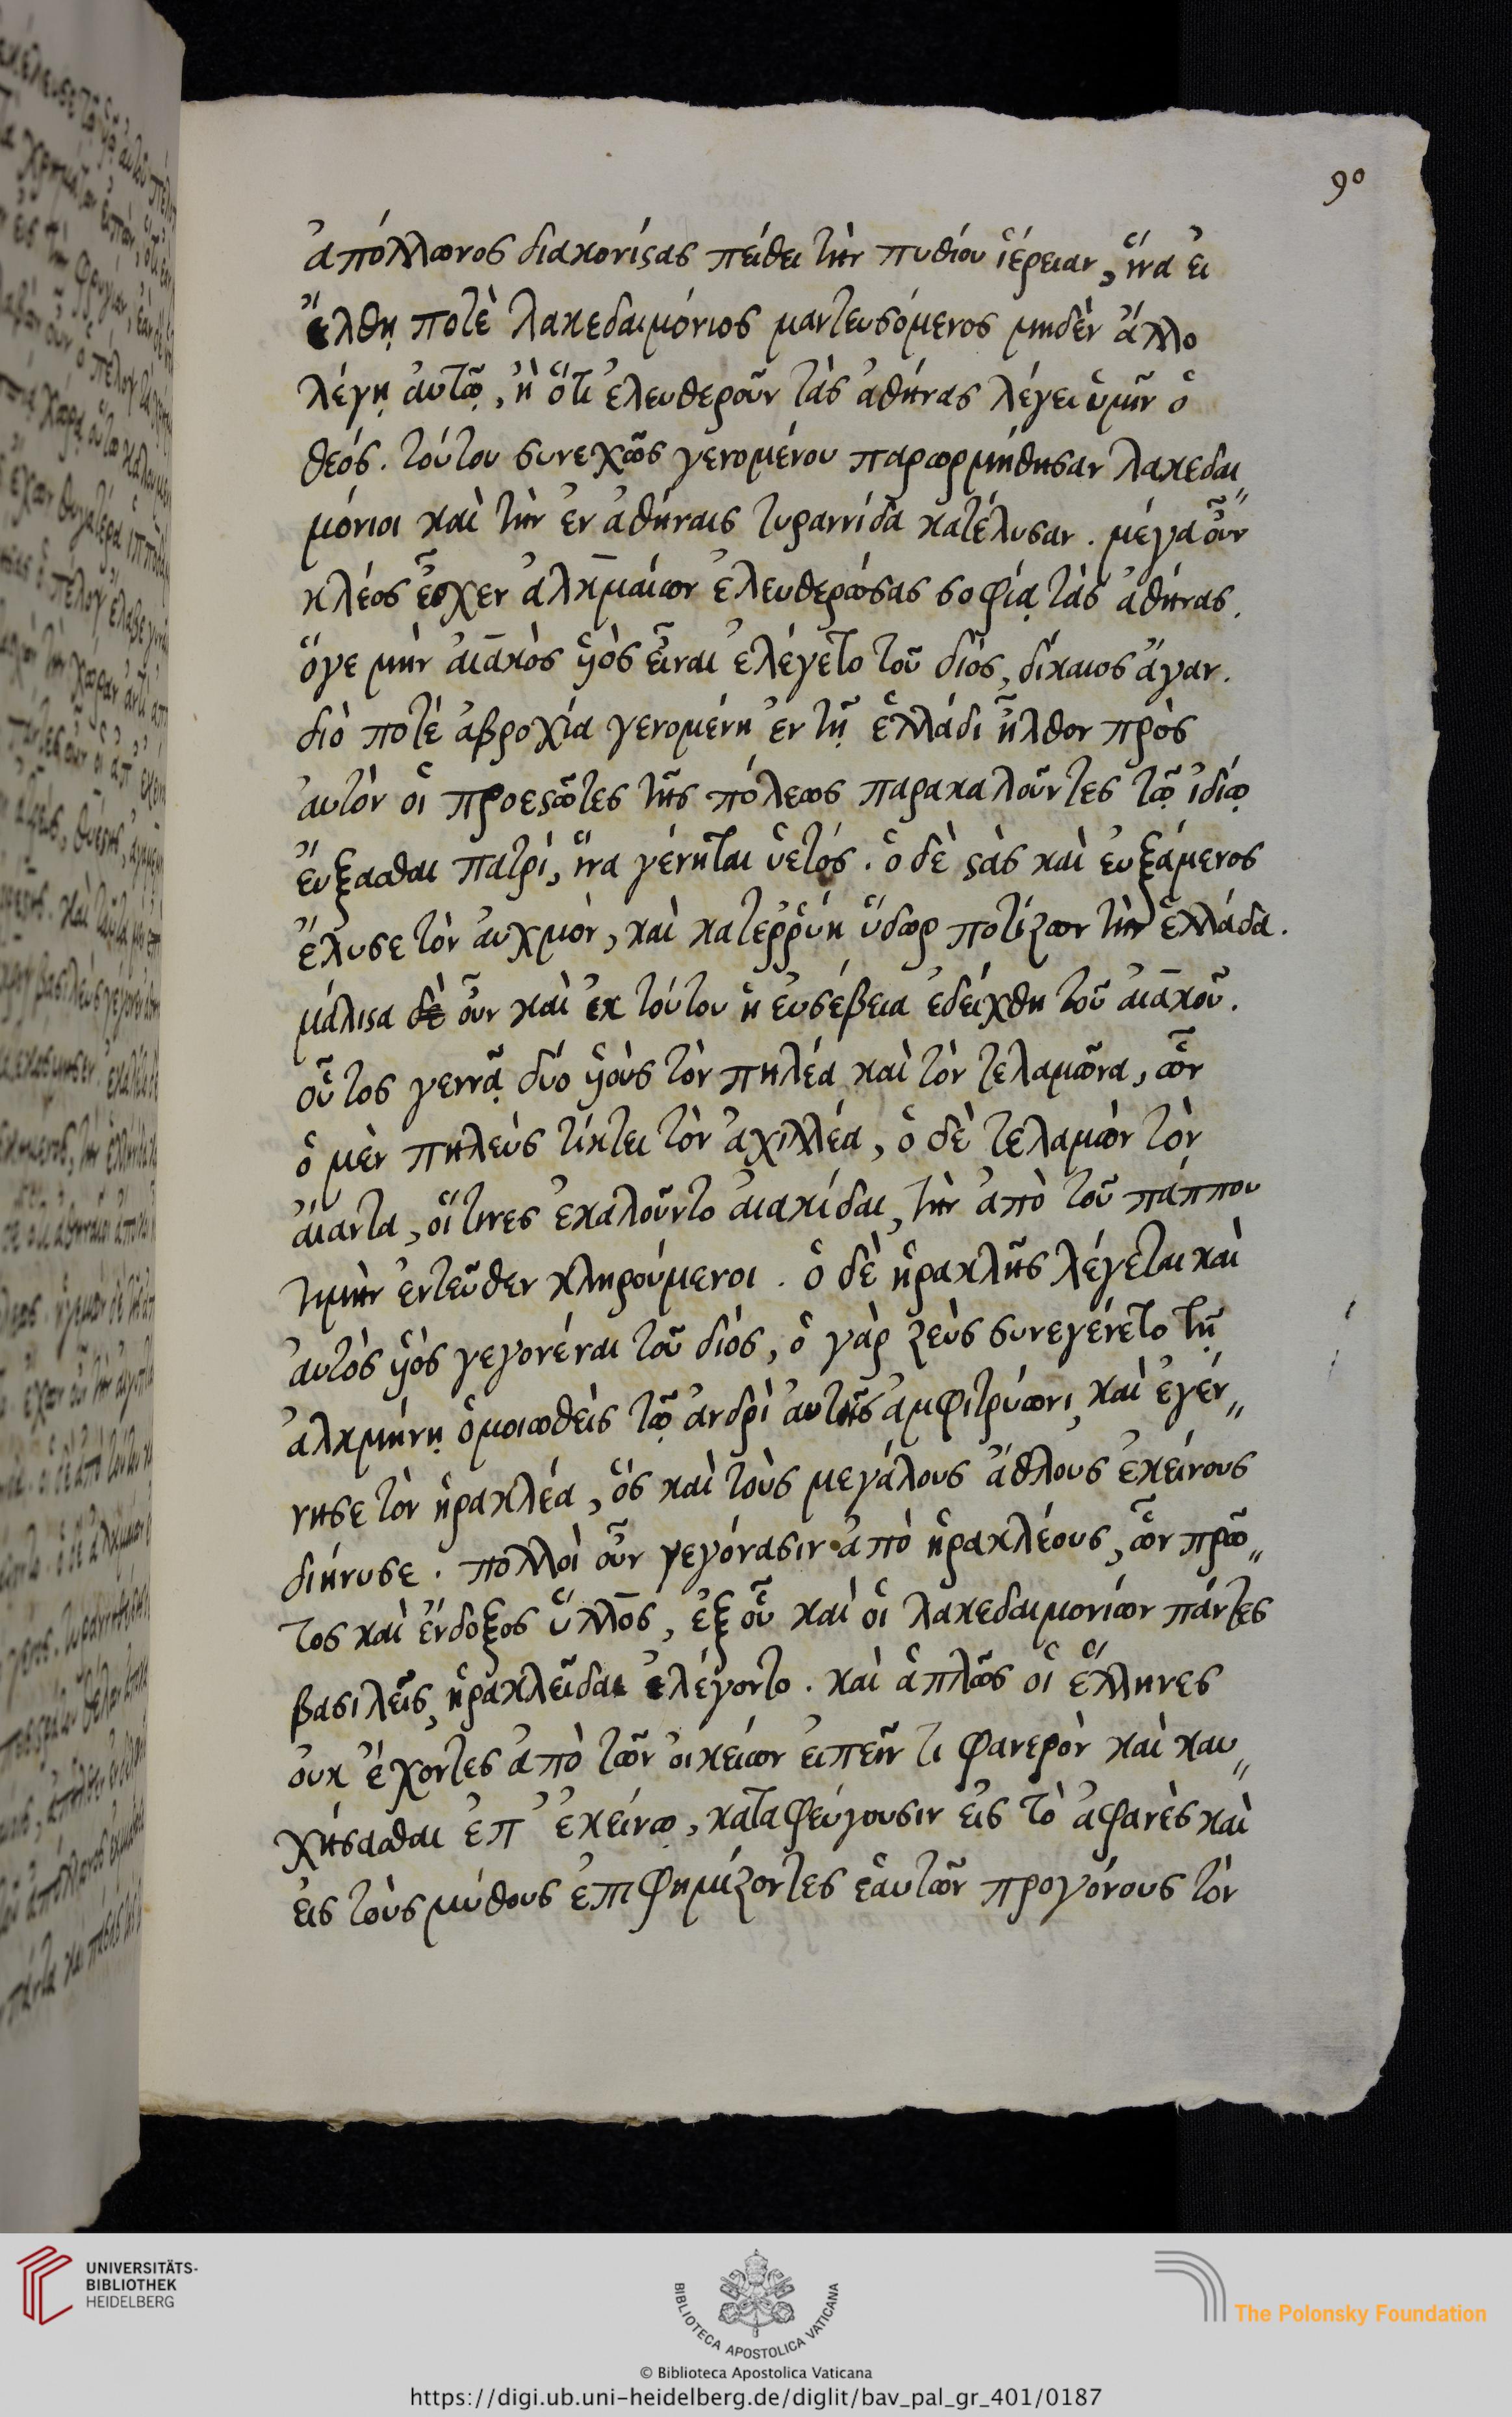 90
ἀπόλλωνος διακονίσας πείθει τὴν πυθίου ἱέρειαν, ἵνα εἰ
ἔλθῃ ποτὲ λακεδαιμόνιος μαντευσόμενος μηδὲν ἄλλο
λέγῃ αὐτῶ, ἢ ὅτι ἐλευθεροῦν τὰς ἀθήνας λέγει ὑμῖν ὁ
θεός. τούτου συνεχῶς γενομένου παρωρμήθησαν λακεδαι„
μόνιοι καὶ τὴν ἐν ἀθήναις τυραννίδα κατέλυσαν. μέγα οὖν
κλέος ἔσχεν ἀλκμαίων ἐλευθερώσας σοφίᾳ τὰς ἀθήνας.
ὅγε μὴν αἰακὸς ὑὸς εἶναι ἐλέγετο τοῦ διὸς, δίκαιος ἄγαν.
διὸ ποτὲ ἀβροχία γενομένη ἐν τῇ ἑλλάδι ἦλθον πρὸς
αὐτὸν οἱ προεστῶτες τῆς πόλεως παρακαλοῦντες τῷ ἰδίῳ
εὔξασθαι πατρὶ, ἵνα γένηται ὑετός. ὁ δὲ στὰς καὶ εὐξάμενος
ἔλυσε τὸν αὐχμὸν, καὶ κατερρύη ὕδωρ ποτίζων τὴν ἑλλάδα.
μάλιστα δὲ οὖν καὶ ἐκ τούτου ἡ εὐσέβεια ἐδείχθη τοῦ αἰακοῦ.
οὗτος γεννᾷ δύο ὑοὺς τὸν πηλέα καὶ τὸν τελαμῶνα, ὧν
ὁ μὲν πηλεὺς τίκτει τὸν ἀχιλλέα, ὁ δὲ τελαμὼν τὸν
αἴαντα, οἵτινες ἐκαλοῦντο αἰακίδαι, τὴν ἀπὸ τοῦ πάππου
τιμὴν ἐντεῦθεν κληρούμενοι. ὁ δὲ ἡρακλῆς λέγεται καὶ
αὐτὸς ὑὸς γεγονέναι τοῦ διὸς, ὁ γὰρ ζεὺς συνεγένετο τῇ
ἀλκμήνῃ ὁμοιωθεὶς τῷ ἀνδρὶ αὐτῆς ἀμφιτρύωνι, καὶ ἐγέν„
νησε τὸν ἡρακλέα, ὃς καὶ τοὺς μεγάλους ἄθλους ἐκείνους
διήνυσε. πολλοὶ οὖν γεγόνασιν ἀπὸ ἡρακλέους, ὧν πρῶ„
τος καὶ ἔνδοξος ὕλλος, ἐξ οὗ καὶ οἱ λακεδαιμονίων πάντες
βασιλεῖς, ἡρακλεῖδαι ἐλέγοντο. καὶ ἁπλῶς οἱ ἕλληνες
οὐκ ἔχοντες ἀπὸ τῶν οἰκείων εἰπεῖν τι φανερὸν καὶ καυ„
χήσασθαι ἐπ' ἐκείνῳ, καταφεύγουσιν εἰς τὸ ἀφανὲς καὶ
εἰς τοὺς μύθους ἐπιφημίζοντες ἑαυτῶν προγόνους τὸν
UNIVERSITÄTS-
BIBLIOTHEK
HEIDELBERG
BIBLIOTECA APOSTOLICA VATICANA
The Polonsky Foundation
© Biblioteca Apostolica Vaticana
https://digi.ub.uni-heidelberg.de/diglit/bav_pal_gr_401/0187